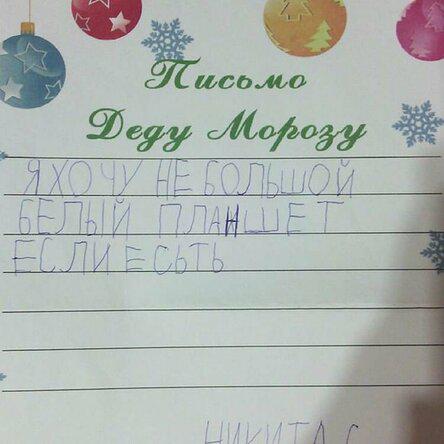 Письмо
Деду Морозу
Я ХОЧУ НЕ БОЛЬШОЙ
БЕЛЫЙ ПЛАНШЕТ
ЕСЛИ ЕСЬТЬ
НИКИТА С